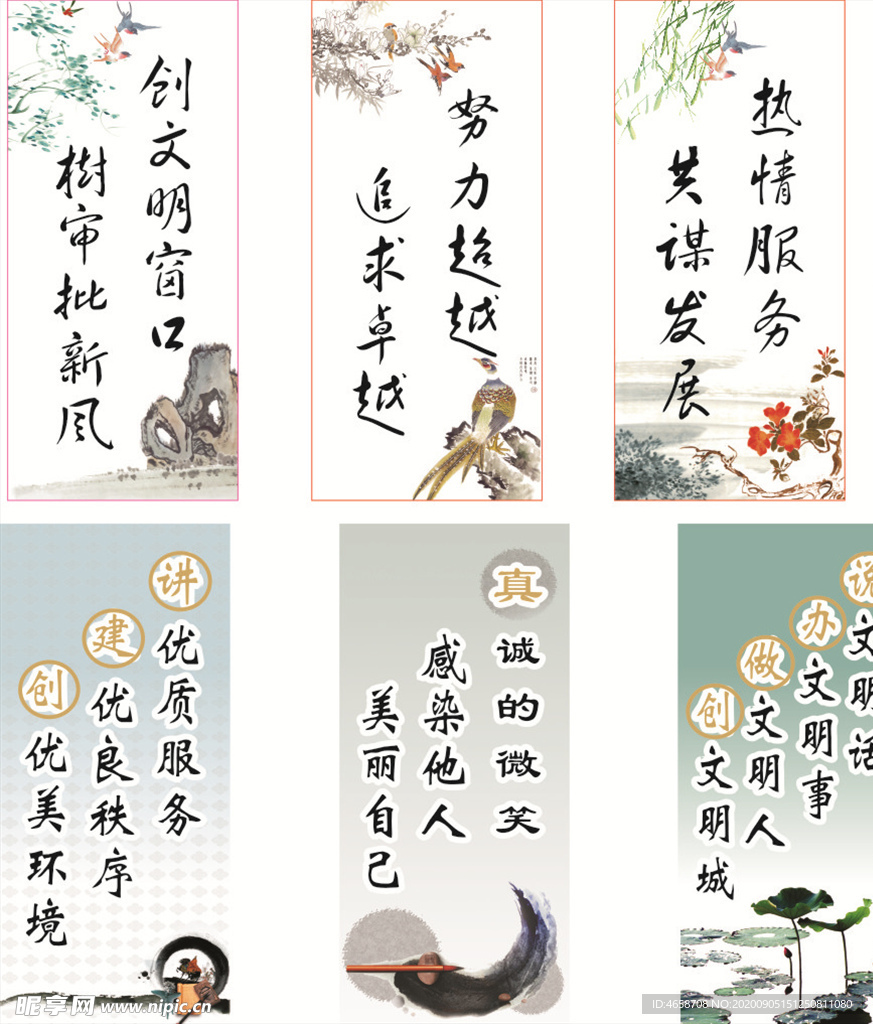 创文明窗口
樹审批新风
努力超越
追求卓越
热情服务
共谋发展
讲优质服务
建优良秩序
创优美环境
真诚的微笑
感染他人
美丽自己
说文明话
办文明事
做文明人
创文明城
昵享网 www.nipic.cn
ID:4658708 NO:20200905151250811080